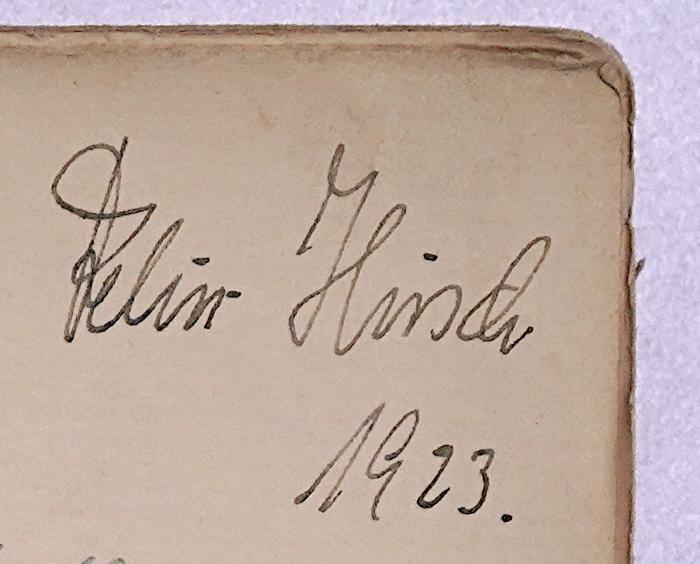 Felix Hirsch
1923.